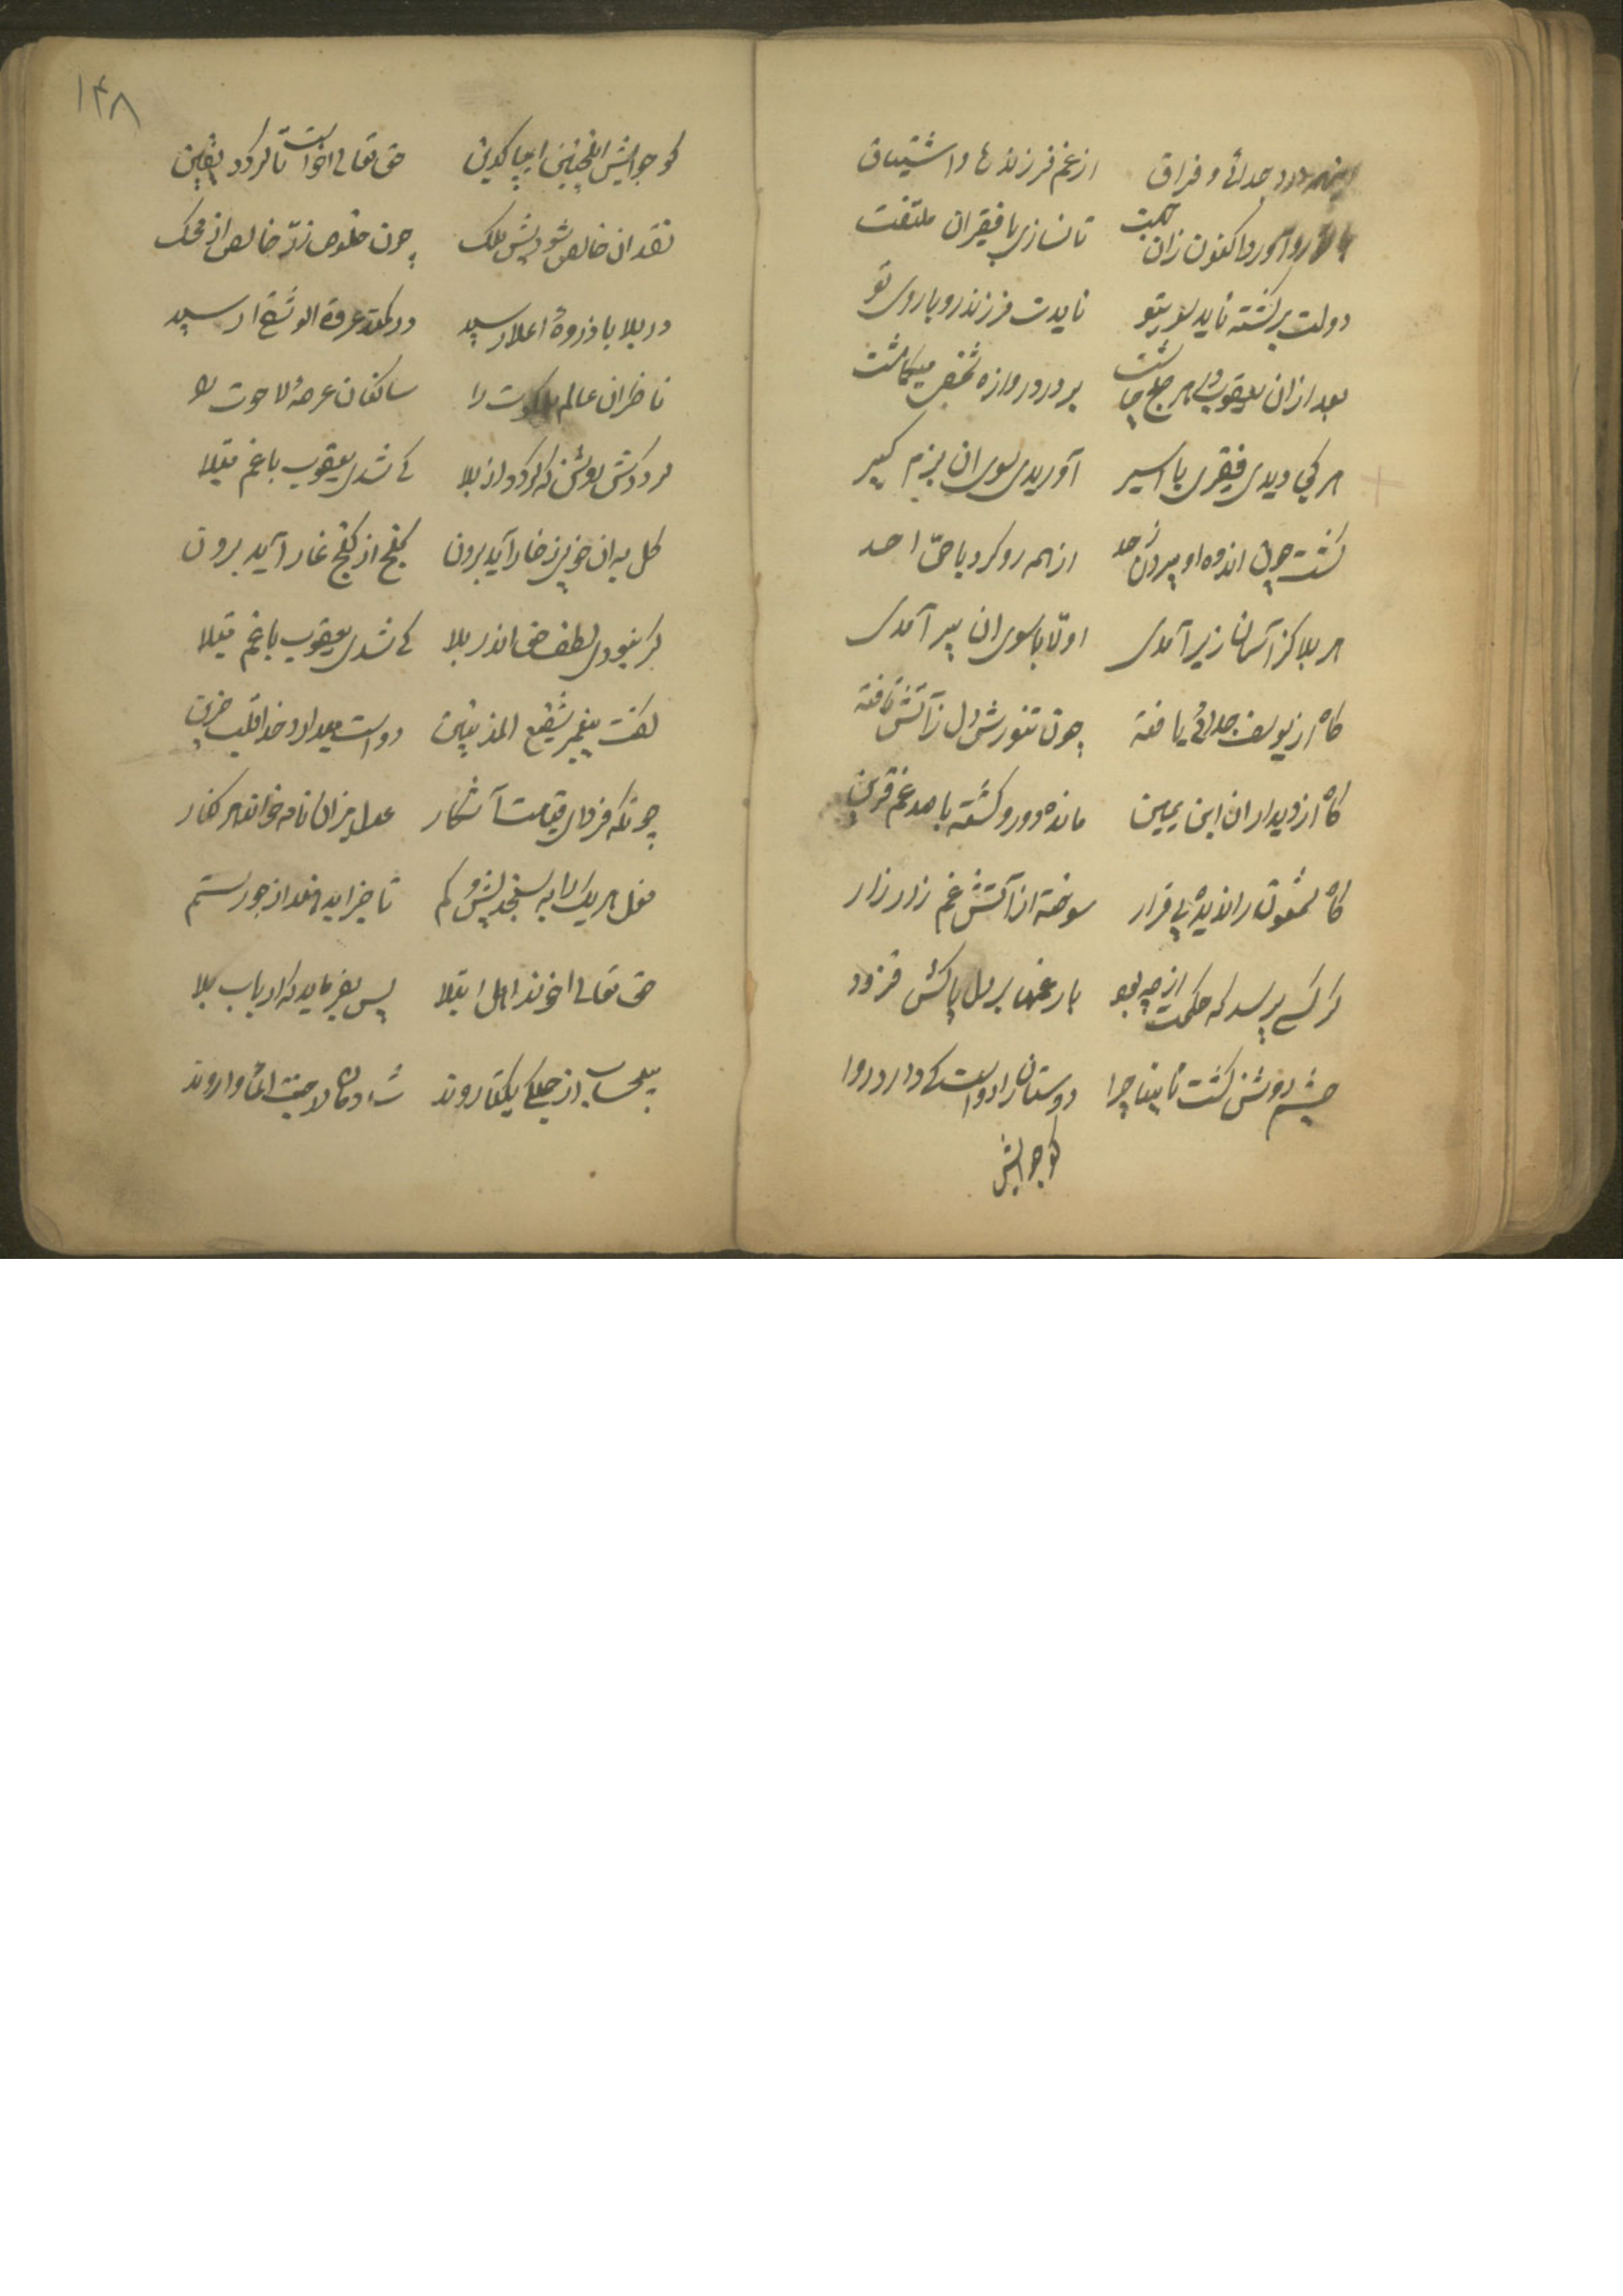 درد جدائی و فراق از غم فرزندها و اشتیاق
رو آورد اکنون زان جهت تا نسازی با فقیران ملتفت
دولت برگشته ناید سوی تو نایدت فرزند رو با روی تو
بعد از ان یعقوب هر صبح چاشت بر در دروازه شخصی میگماشت
هر کی دیدی فقیری یا اسیر آوریدی سوی ان بزم کبیر
گشت چون اندوه او بیرون ز حد از همه رو کرد با حیّ احد
هر بلا کز آسمان زیر آمدی اولّا با سوی ان پیر آمدی
گاه از یوسف جدائی یافته چون تنورش دل ز آتش تافته
گاه از دیدار ان ابن یمین مانده دور و گشته با صد غم قرین
گاه شمعون را ندیده بی قرار سوخته از آتش غم زار زار
گر کسی پرسد که حکمت از چه بود بار غمها بر دل پاکش فزود
چشم روشن گشت نابینا چرا دوستان را دوست کی دارد روا
گو جوابش
۱۴۸
گو جوابش اینچنین ای پاکدین حق تعالی خواست تا گردد یقین
نقد ان خالص شود پیش ملک چون خلوص زرّ خالص از محک
در بلا با ذروهٔ اعلا رسید در عروة الوثقی رسید
ناظران عالم ملکوت را ساکنان عرصهٔ لاهوت را
کی شدی یعقوب با غم مبتلا
گل بدان خوبی ز خار آید برون گنج از کنج غار آید برون
گر نبودی لطف حق اندر بلا کی شدی یعقوب با غم مبتلا
گفت پیغمبر شفیع المذنبین دوست میدارد خدا قلب حزین
چونکه فردای قیامت آشکار عدل میزان نامه خواند هر کنار
فعل هر یک را به سنجد بیش و کم تا جزا یابد از جور و ستم
حق تعالی خواند اهل ابتلا پس بفرماید که ارباب بلا
بیحساب از جملگی یکتا روند شادمان در جنت المأوا روند